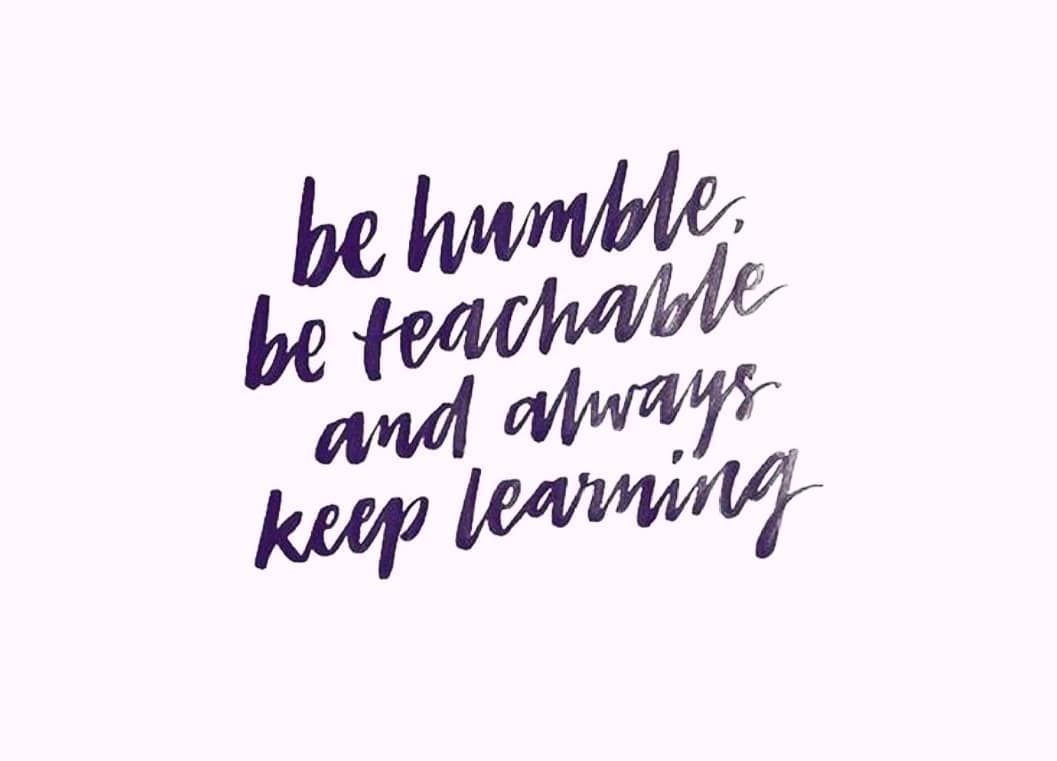 be humble,
be teachable
and always
keep learning